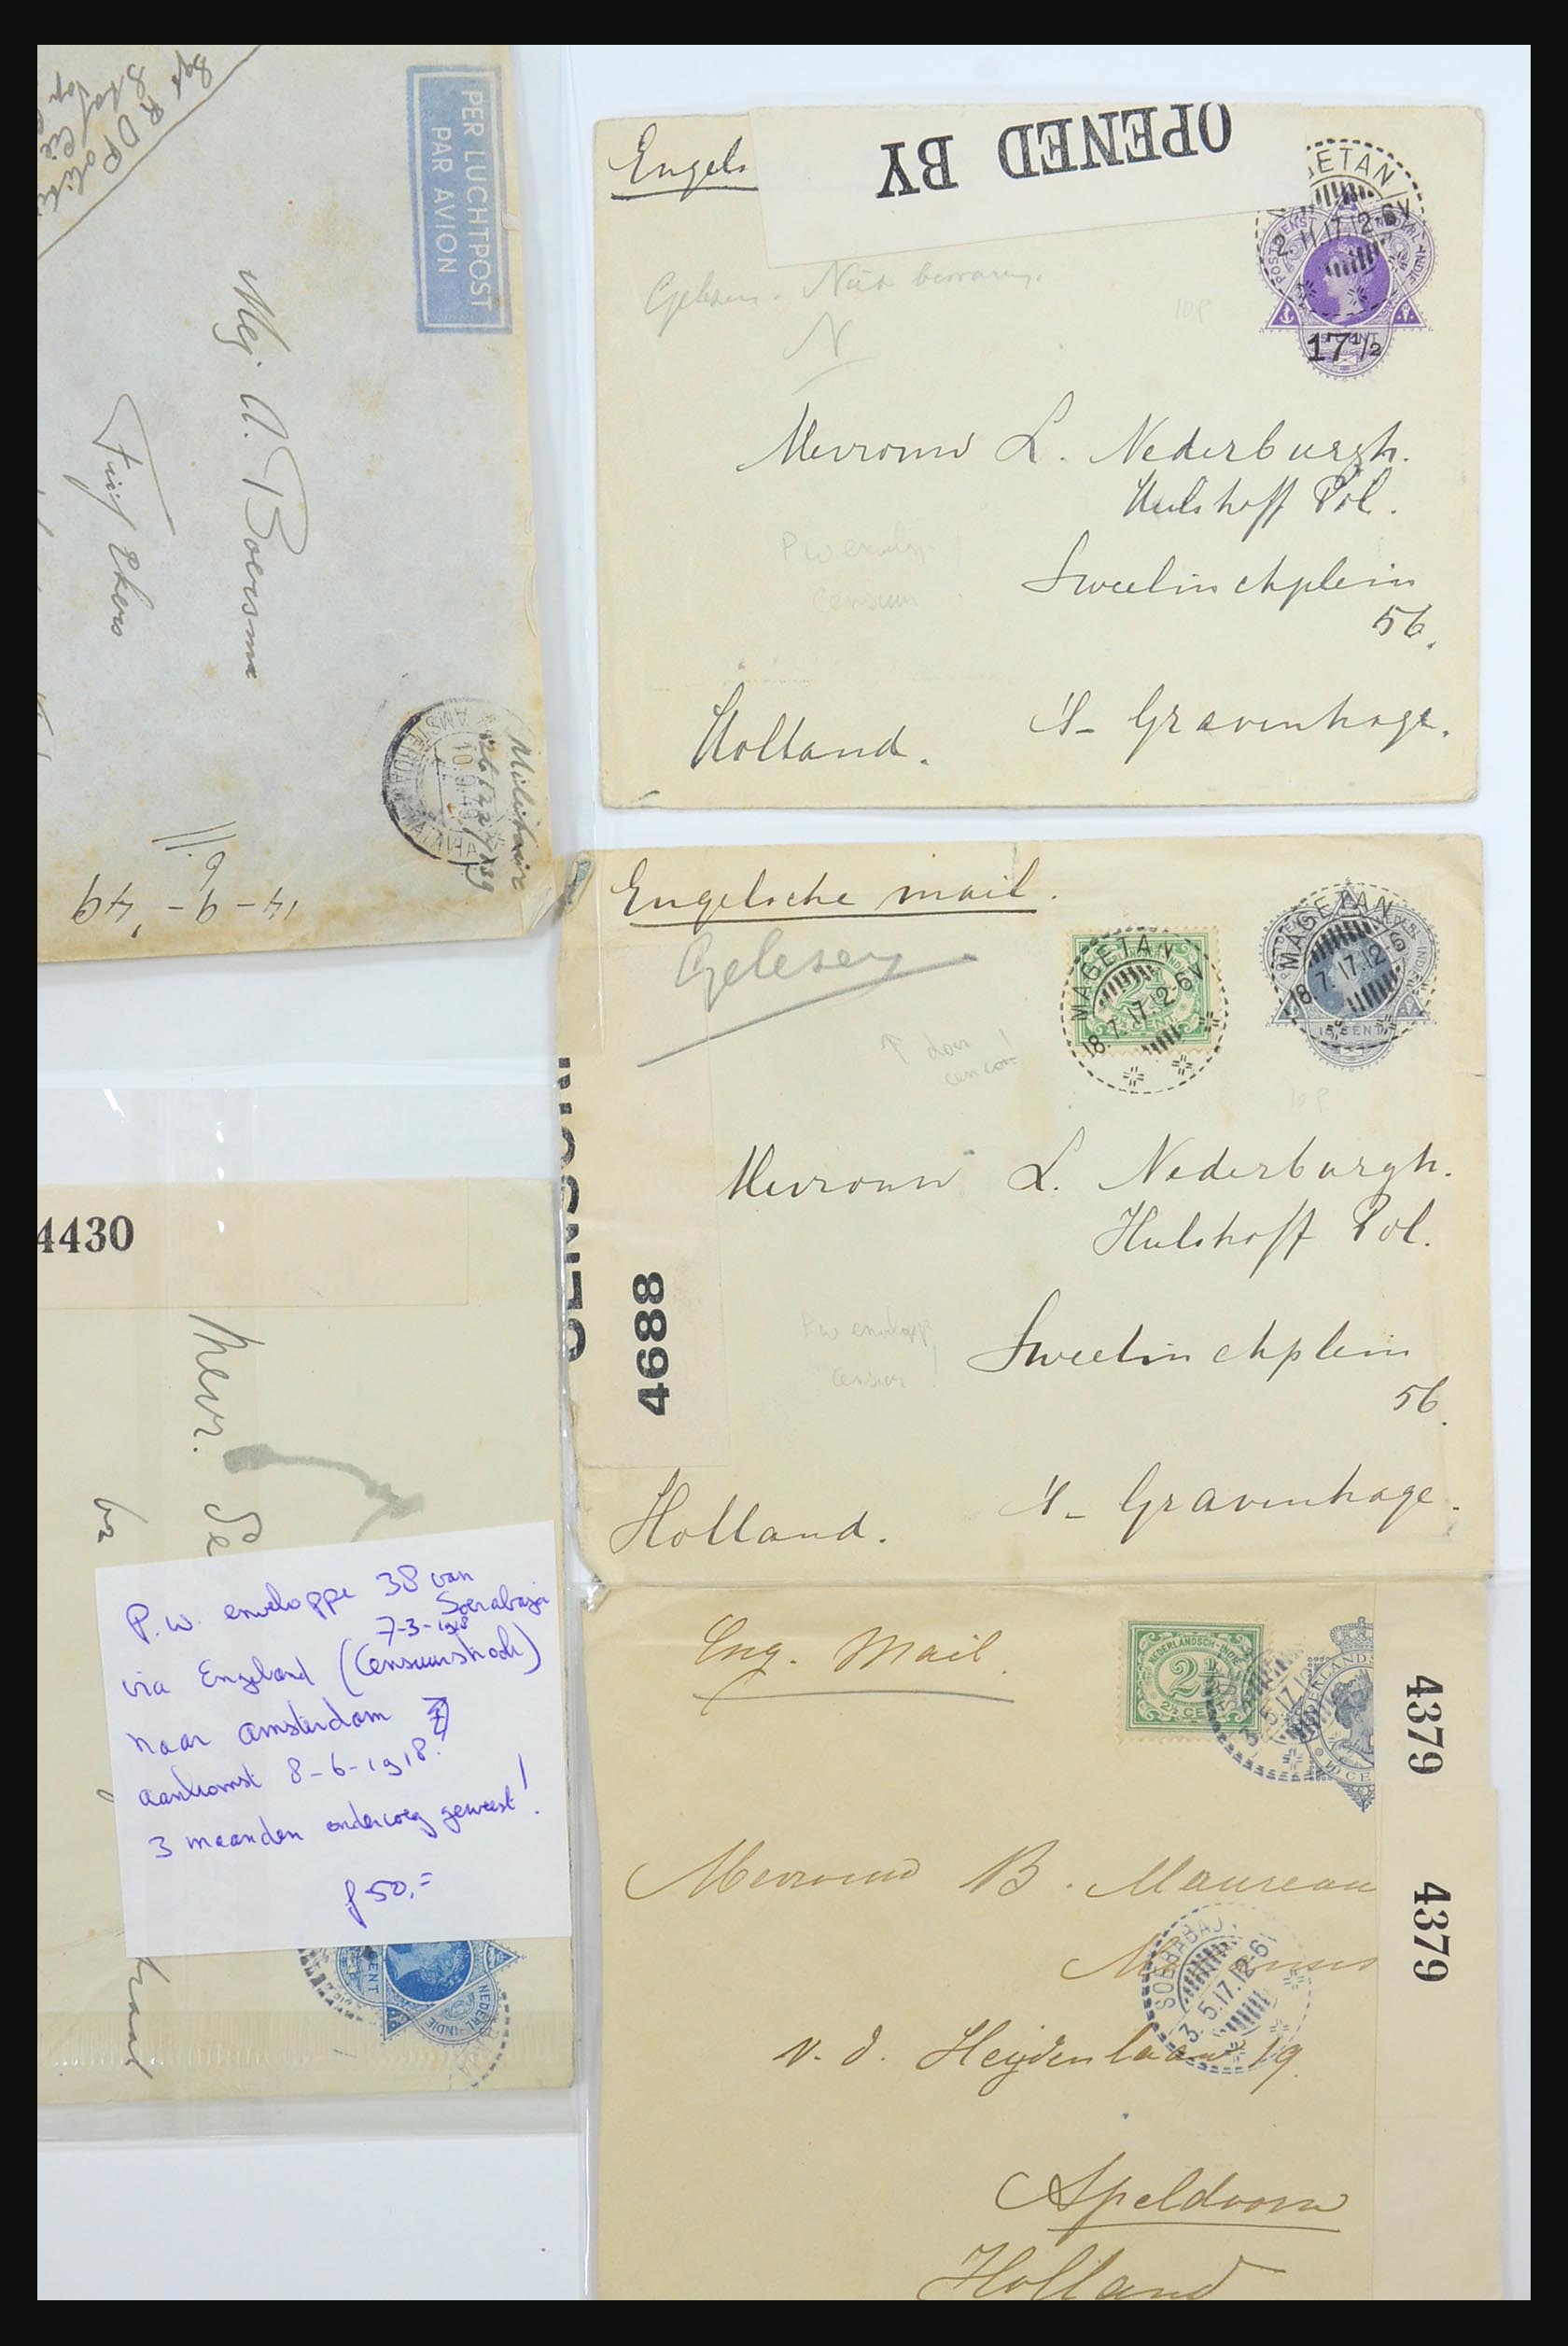 PER LUCHTPOST
PAR AVION
Mej. A. Boersma
Militaire
10.9.49
14-9-'49
OPENED BY
Engels
GETAN
2. 11.17.12-6V
POST
17 1/2
Gelezen. Niet bewaren.
N
10 p
Mevrouw L. Nederburgh.
Hulshoff Pol.
Sweelinckplein
56.
's-Gravenhage.
Holland.
P W envelop
censuur
Engelsche mail.
Gelezen
↑ door
censor!
MAGETAN
18.7.17.12-6V
MAGETAN
18.7.17.12-6
15 CENT
10 p
4688
Mevrouw L. Nederburgh.
Hulshoff Pol.
Sweelinckplein
56.
's-Gravenhage.
Holland.
Pw enveloppe
censuur!
4430
Mevr. Se
P.w. enveloppe 38 van
Soerabaja
7-3-1918
via Engeland (Censuurstrook)
naar Amsterdam
aankomst 8-6-1918.
3 maanden onderweg geweest!
f 50,=
CENT
NEDERL-INDIE
Eng. Mail.
NEDERLANDSCH-INDIE
2½
2½ CE
10 CE
4379
4379
Mevrouw B. Maureau
SOERABAJ
3.5.17.12-6
v. d. Heijdenlaan 19.
Apeldoorn
Holland